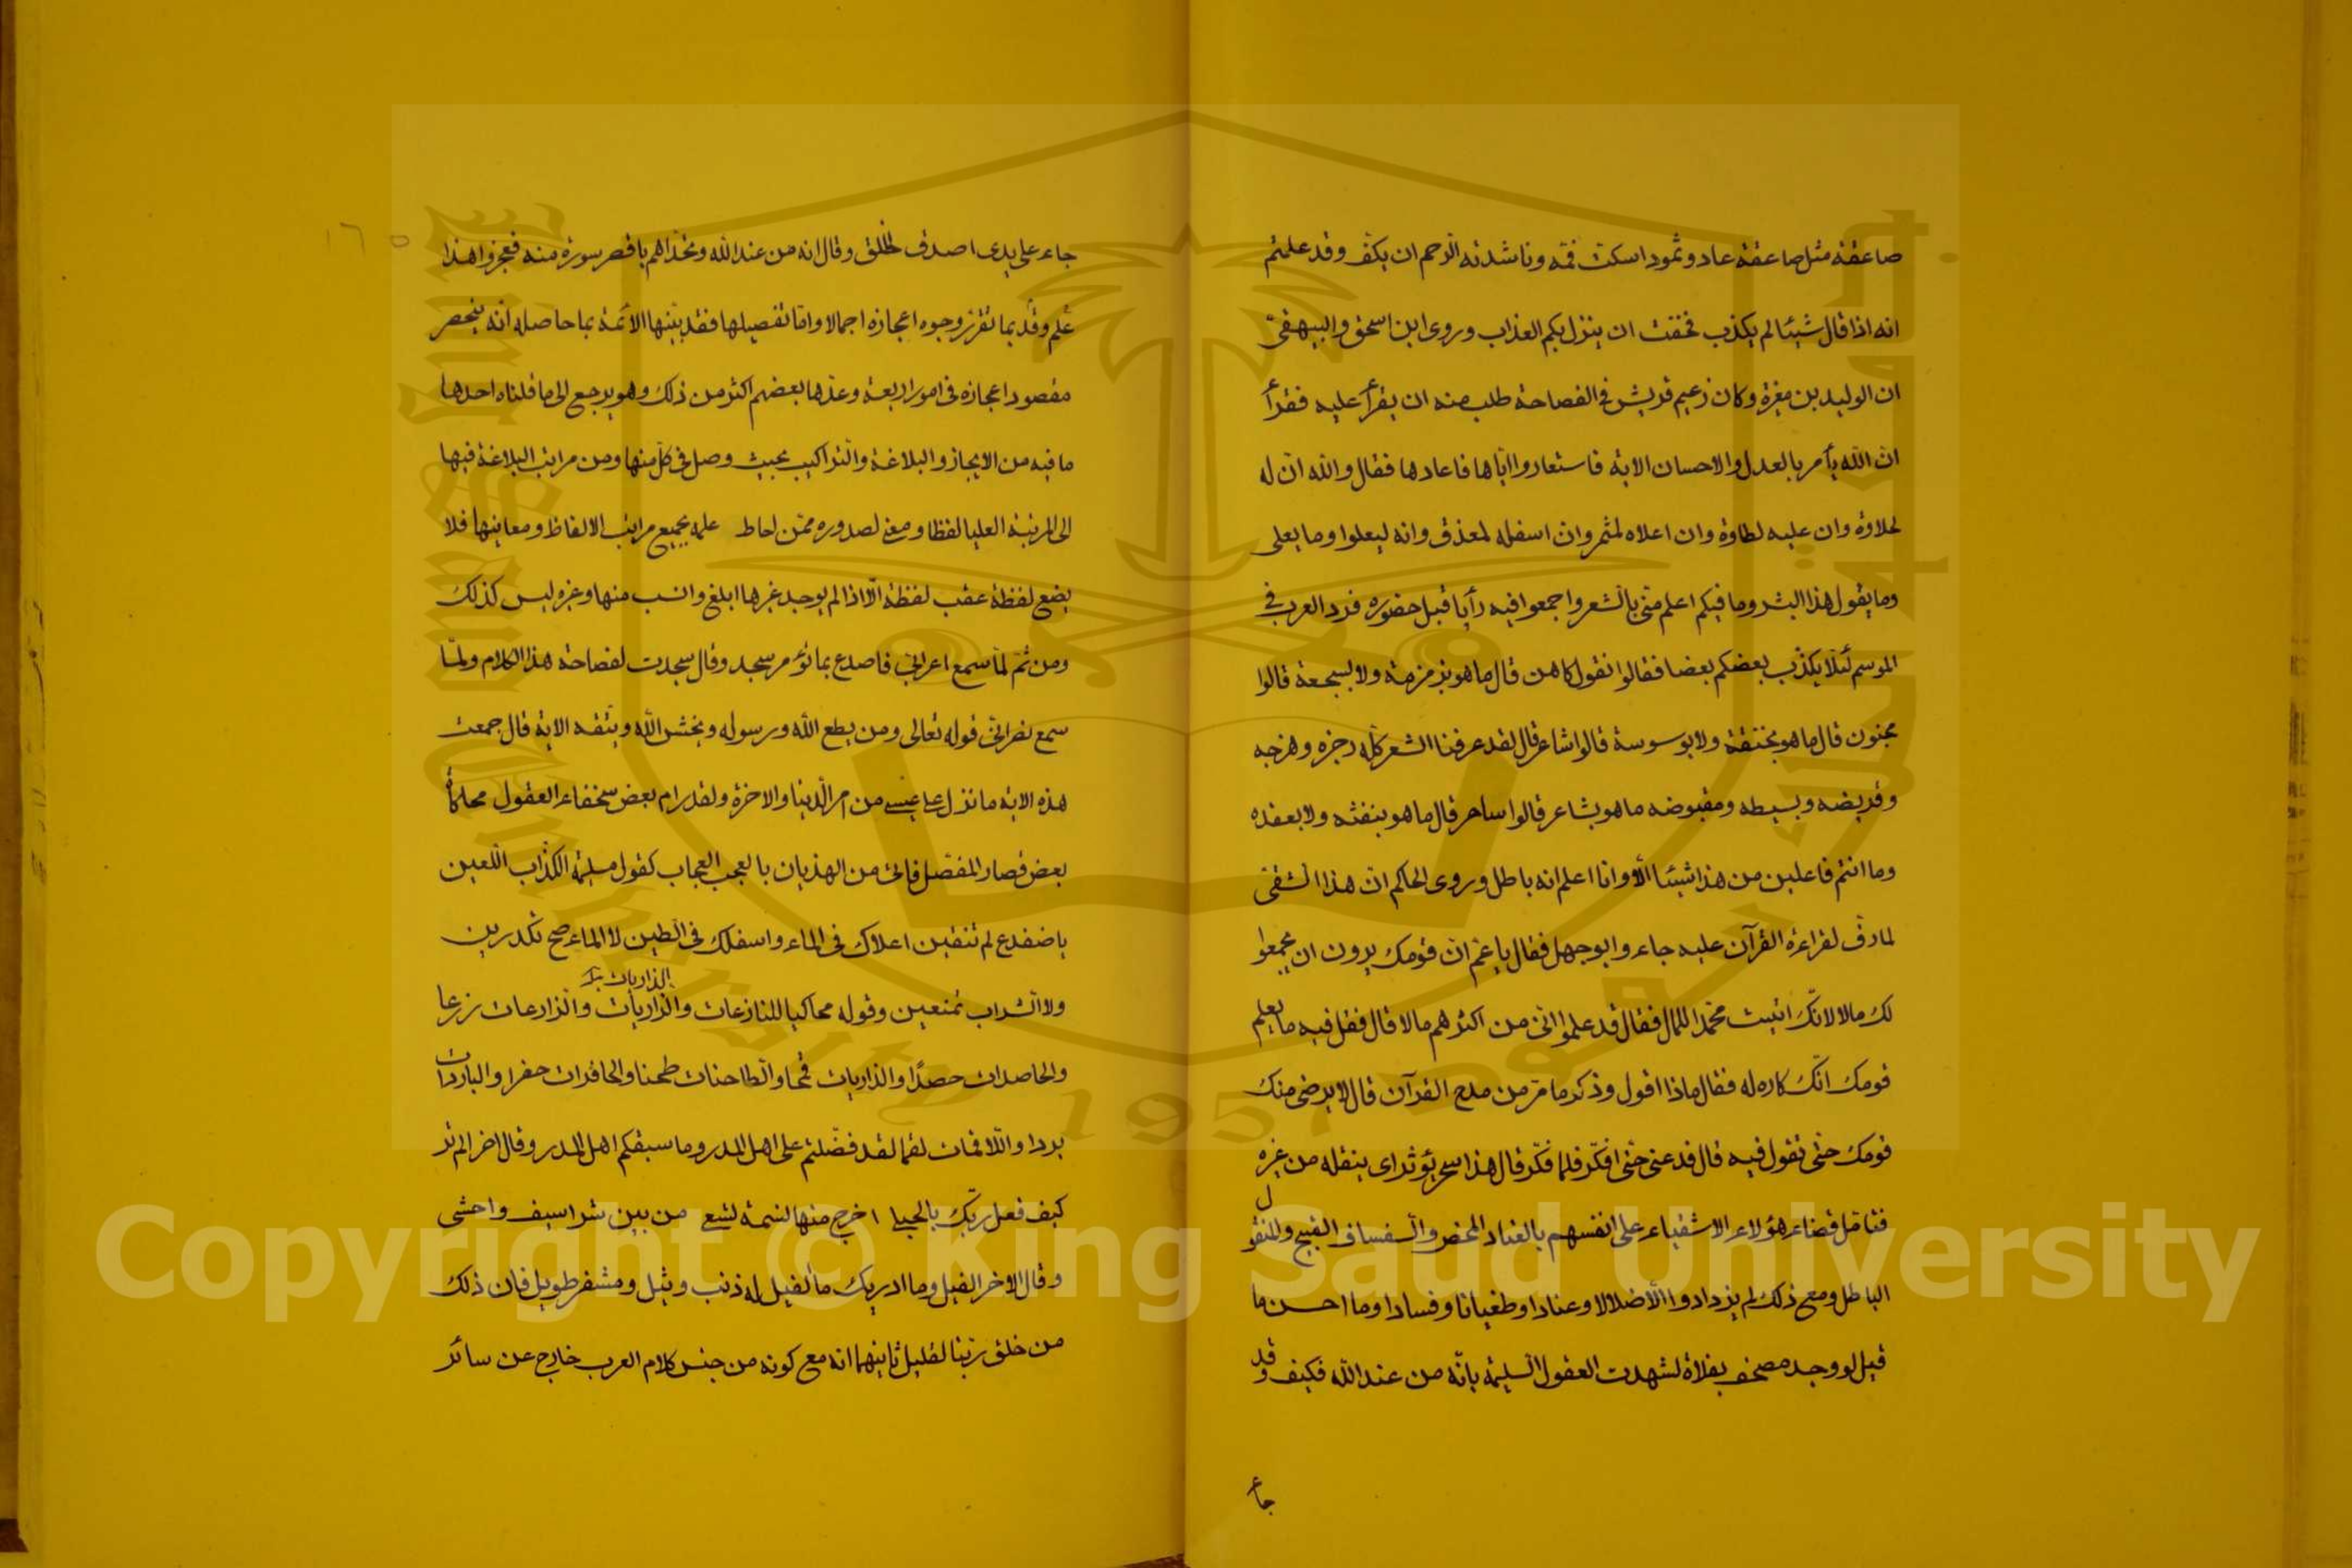 صاعقة مثل صاعقة عاد وثمود اسكت فمه وناشدته الرحم ان يكف وقد علمتم
انه اذا قال شيئا لم يكذب فخفت ان ينزل بكم العذاب وروى ابن اسحق والبيهقى
ان الوليد بن مغيرة وكان زعيم قريش في الفصاحة طلب منه ان يقرأ عليه فقرأ
ان الله يأمر بالعدل والاحسان الاية فاستعادوا اياها فاعادها فقال والله ان له
لحلاوة وان عليه لطاوة وان اعلاه لمثمر وان اسفله لمعذق وانه ليعلوا وما يعلى
وما يقول هذا البشر وما فيكم اعلم منى بالشعر واجمعوا فيه رأيا قبل حضوره فرد العرب في
الموسم لئلا يكذب بعضكم بعضا فقالوا نقول كاهن قال ما هو بزمزمة ولا بسجعة قالوا
مجنون قال ما هو بخنقة ولا بوسوسة قالوا شاعر قال لقد عرفنا الشعر كله رجزه وهزجه
وقريضه وبسيطه ومقبوضه ما هو بشاعر قالوا ساحر قال ما هو بنفثه ولا بعقده
وما انتم فاعلين من هذا شيئا الا وانا اعلم انه باطل وروى الحاكم ان هذا الشقى
لما رق لقراءة القرآن عليه جاء وابو جهل فقال يا عم ان قومك يرون ان يجمعوا
لك مالا لانك اتيت محمدا للمال فقال قد علموا انى من اكثرهم مالا قال فقل فيه ما يعلم
قومك انك كاره له فقال ماذا اقول وذكر ما مر من مدح القرآن قال لا يرضى منك
قومك حتى تقول فيه قال فدعنى حتى افكر فلما فكر قال هذا سحر يؤثر اى ينقله من غيره
فتامل قضاء هؤلاء الاشقياء على انفسهم بالعناد المحض والسفساف القبيح والتقول
الباطل ومع ذلك لم يزدادوا الا ضلالا وعنادا وطغيانا وفسادا وما احسن ما
قيل لو وجد مصحف بفلاة لشهدت العقول السليمة بانه من عند الله فكيف وقد
جاء
١٦٥
جاء على يدى اصدق الخلق وقال انه من عند الله وتحداهم باقصر سورة منه فعجزوا هذا
علم وقد بما تقرر وجوه اعجازه اجمالا واما تفصيلها فقد بينها الائمة بما حاصله انه ينحصر
مقصود اعجازه فى امور اربعة وعدها بعضهم اكثر من ذلك وهو يرجع الى ما قلناه احدها
ما فيه من الايجاز والبلاغة والتراكيب بحيث وصل فى كل منها ومن مراتب البلاغة فيها
الى المرتبة العليا لفظا ومعنى لصدوره ممن احاط علمه بجميع مراتب الالفاظ ومعانيها فلا
يضع لفظة عقب لفظة الا اذا لم يوجد غيرها ابلغ وانسب منها وغيره ليس كذلك
ومن ثم لما سمع اعرابى فاصدع بما تؤمر سجد وقال سجدت لفصاحة هذا الكلام ولما
سمع نصرانى قوله تعالى ومن يطع الله ورسوله ويخش الله ويتقه الاية قال جمعت
هذه الاية ما نزل على عيسى من امر الدينا والاخرة ولقد رام بعض سخفاء العقول محاكاة
بعض قصار المفصل فاتى من الهذيان بالعجب العجاب كقول مسيلمة الكذاب اللعين
يا ضفدع لم تنقين اعلاك فى الماء واسفلك فى الطين لا الماء صح تكدرين
ولا الشراب تمنعين وقوله محاكيا للنازعات والذاريات والزارعات زرعا
والحاصدات حصدا والذاريات قمحا والطاحنات طحنا والحافرات حفرا والباردات
بردا واللاقمات لقما لقد فضلتم على اهل المدر وما سبقكم اهل المدر وقال اخر الم تر
كيف فعل ربك بالحبلى اخرج منها نسمة تسعى من بين شراسيف واحشى
وقال الاخر الفيل وما ادريك ما الفيل له ذنب وثيل ومشفر طويل فان ذلك
من خلق ربنا لقليل ثانيهما انه مع كونه من جنس كلام العرب خارج عن سائر
Copyright © King Saud University
1957